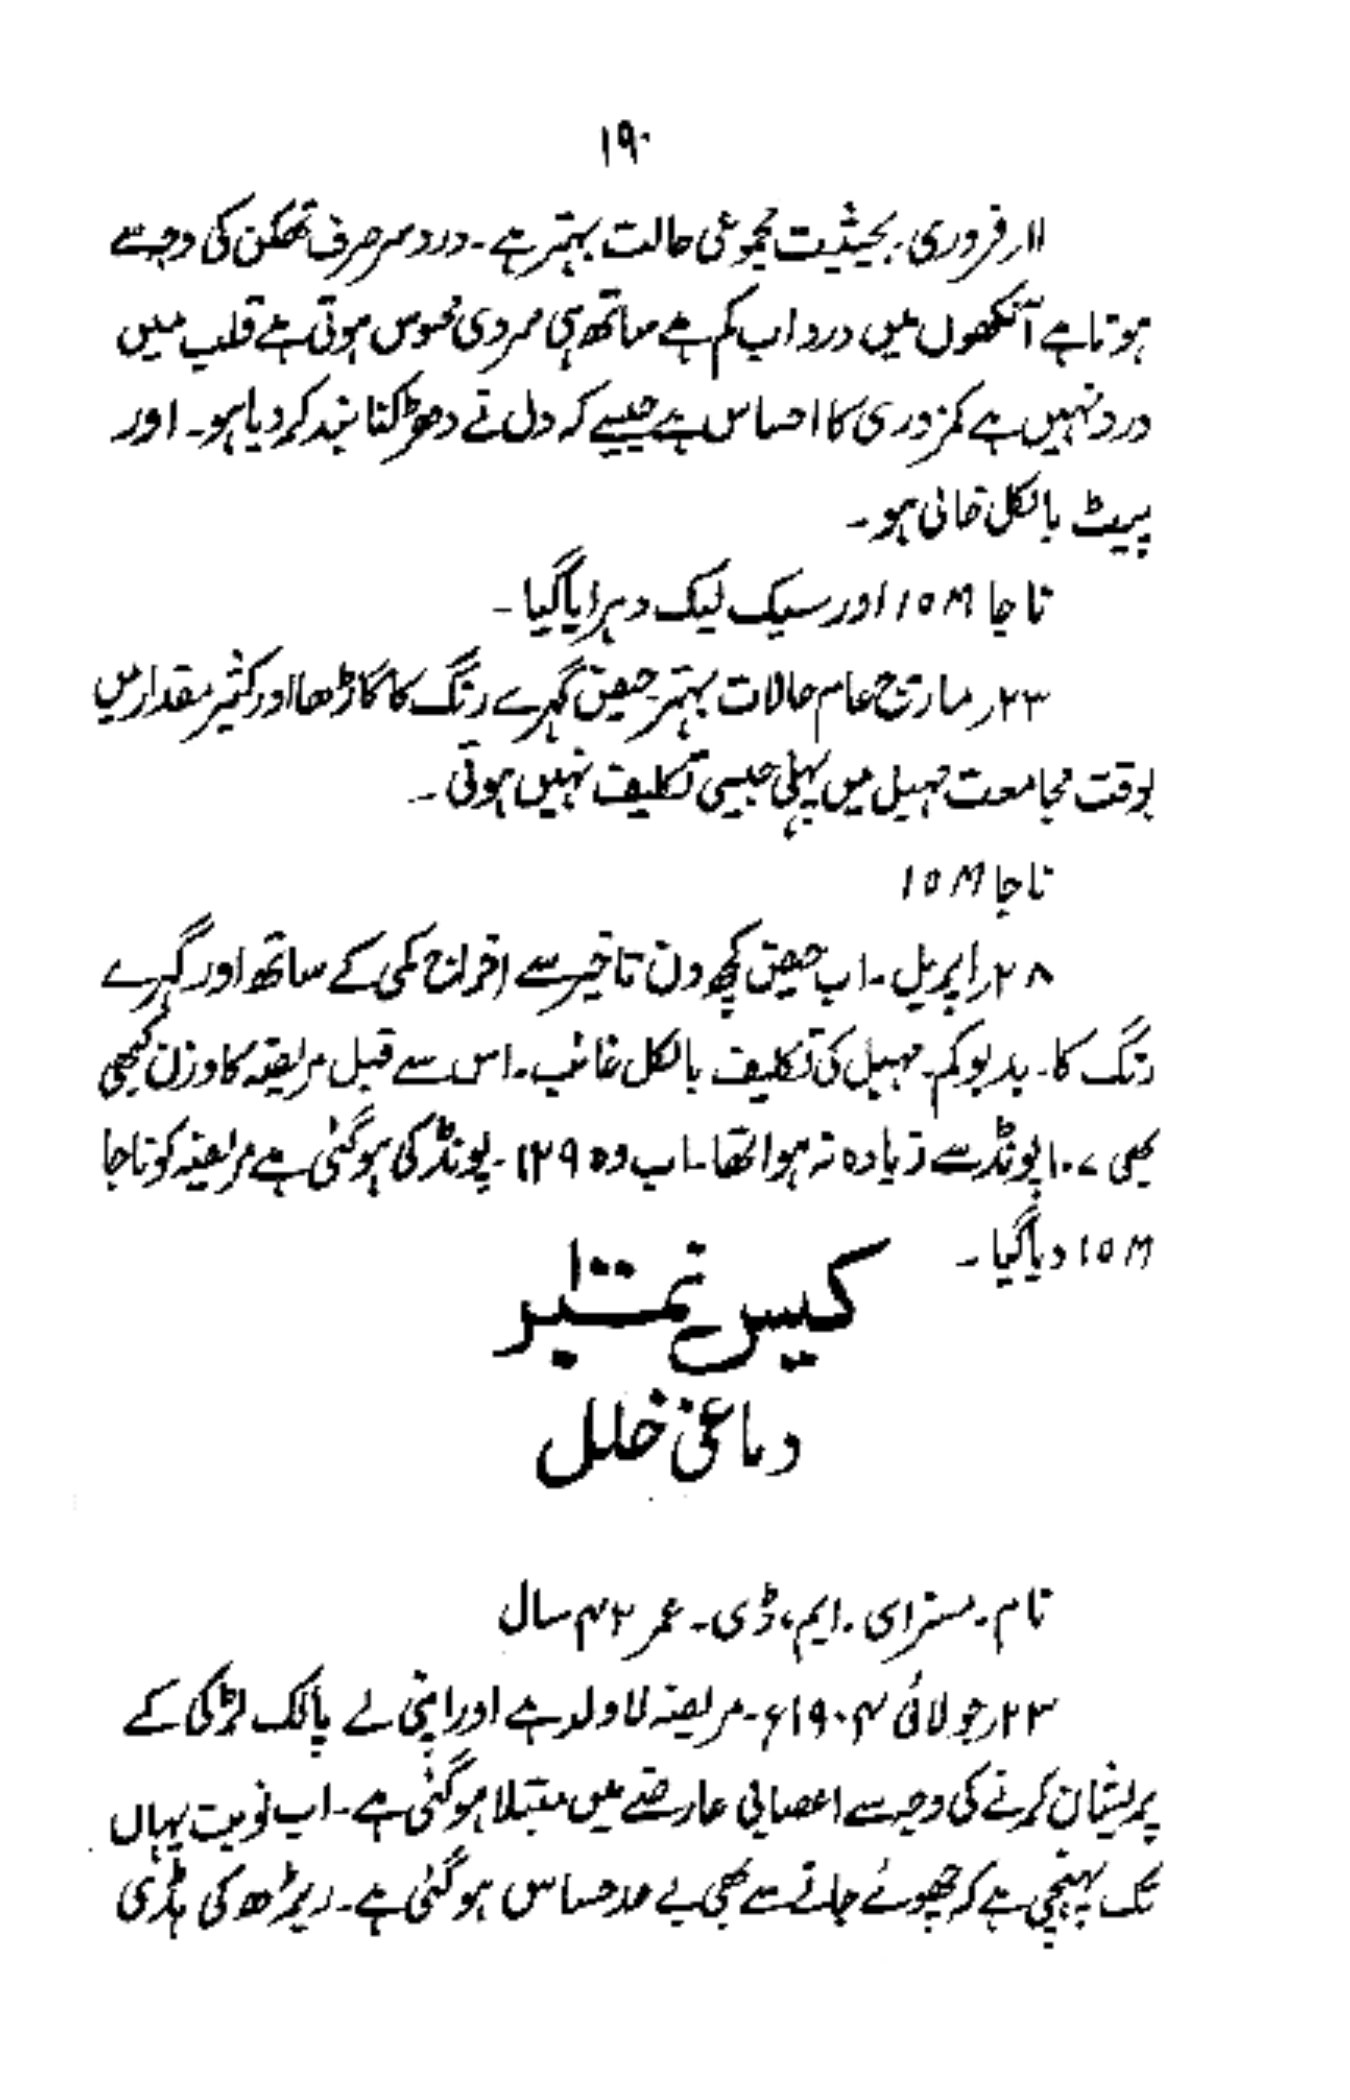 ۱۹۰
۱۱ر فروری۔ بحیثیت مجموعی حالت بہتر ہے۔ درد سر صرف تھکن کی وجہ سے
ہوتا ہے آنکھوں میں درد اب کم ہے ساتھ ہی سردی محسوس ہوتی ہے قلب میں
درد نہیں ہے کمزوری کا احساس ہے جیسے کہ دل نے دھڑکنا بند کر دیا ہو۔ اور
پیٹ بالکل خالی ہو۔
تاجا ۱۵M اور سیک لیک دہرایا گیا۔
۲۳ر مارچ عام حالات بہتر۔ حیض گہرے رنگ کا گاڑھا اور کثیر مقدار میں
بوقت مجامعت مہبل میں پہلی جیسی تکلیف نہیں ہوتی۔
تاجا ۱۵M
۲۸ر اپریل۔ اب حیض کچھ دن تاخیر سے اخراج کمی کے ساتھ اور گہرے
رنگ کا۔ بدبو کم۔ مہبل کی تکلیف بالکل غائب۔ اس سے قبل مریضہ کا وزن کبھی
بھی ۱۰۷ پونڈ سے زیادہ نہ ہوا تھا۔ اب وہ ۱۲۹۔ پونڈ کی ہو گئی ہے مریضہ کو تاجا
۱۵M دیا گیا۔
کیس نمبر ۱۰۰
دماغی خلل
نام۔ مسز ای۔ ایم، ڈی۔ عمر ۴۲ سال
۲۳ر جولائی ۱۹۰۴ء۔ مریضہ لاولد ہے اور اپنی لے پالک لڑکی کے
پریشان کرنے کی وجہ سے اعصابی عارضے میں مبتلا ہو گئی ہے۔ اب نوبت یہاں
تک پہنچی ہے کہ چھوئے جانے سے بھی بے حد حساس ہو گئی ہے۔ ریڑھ کی ہڈی